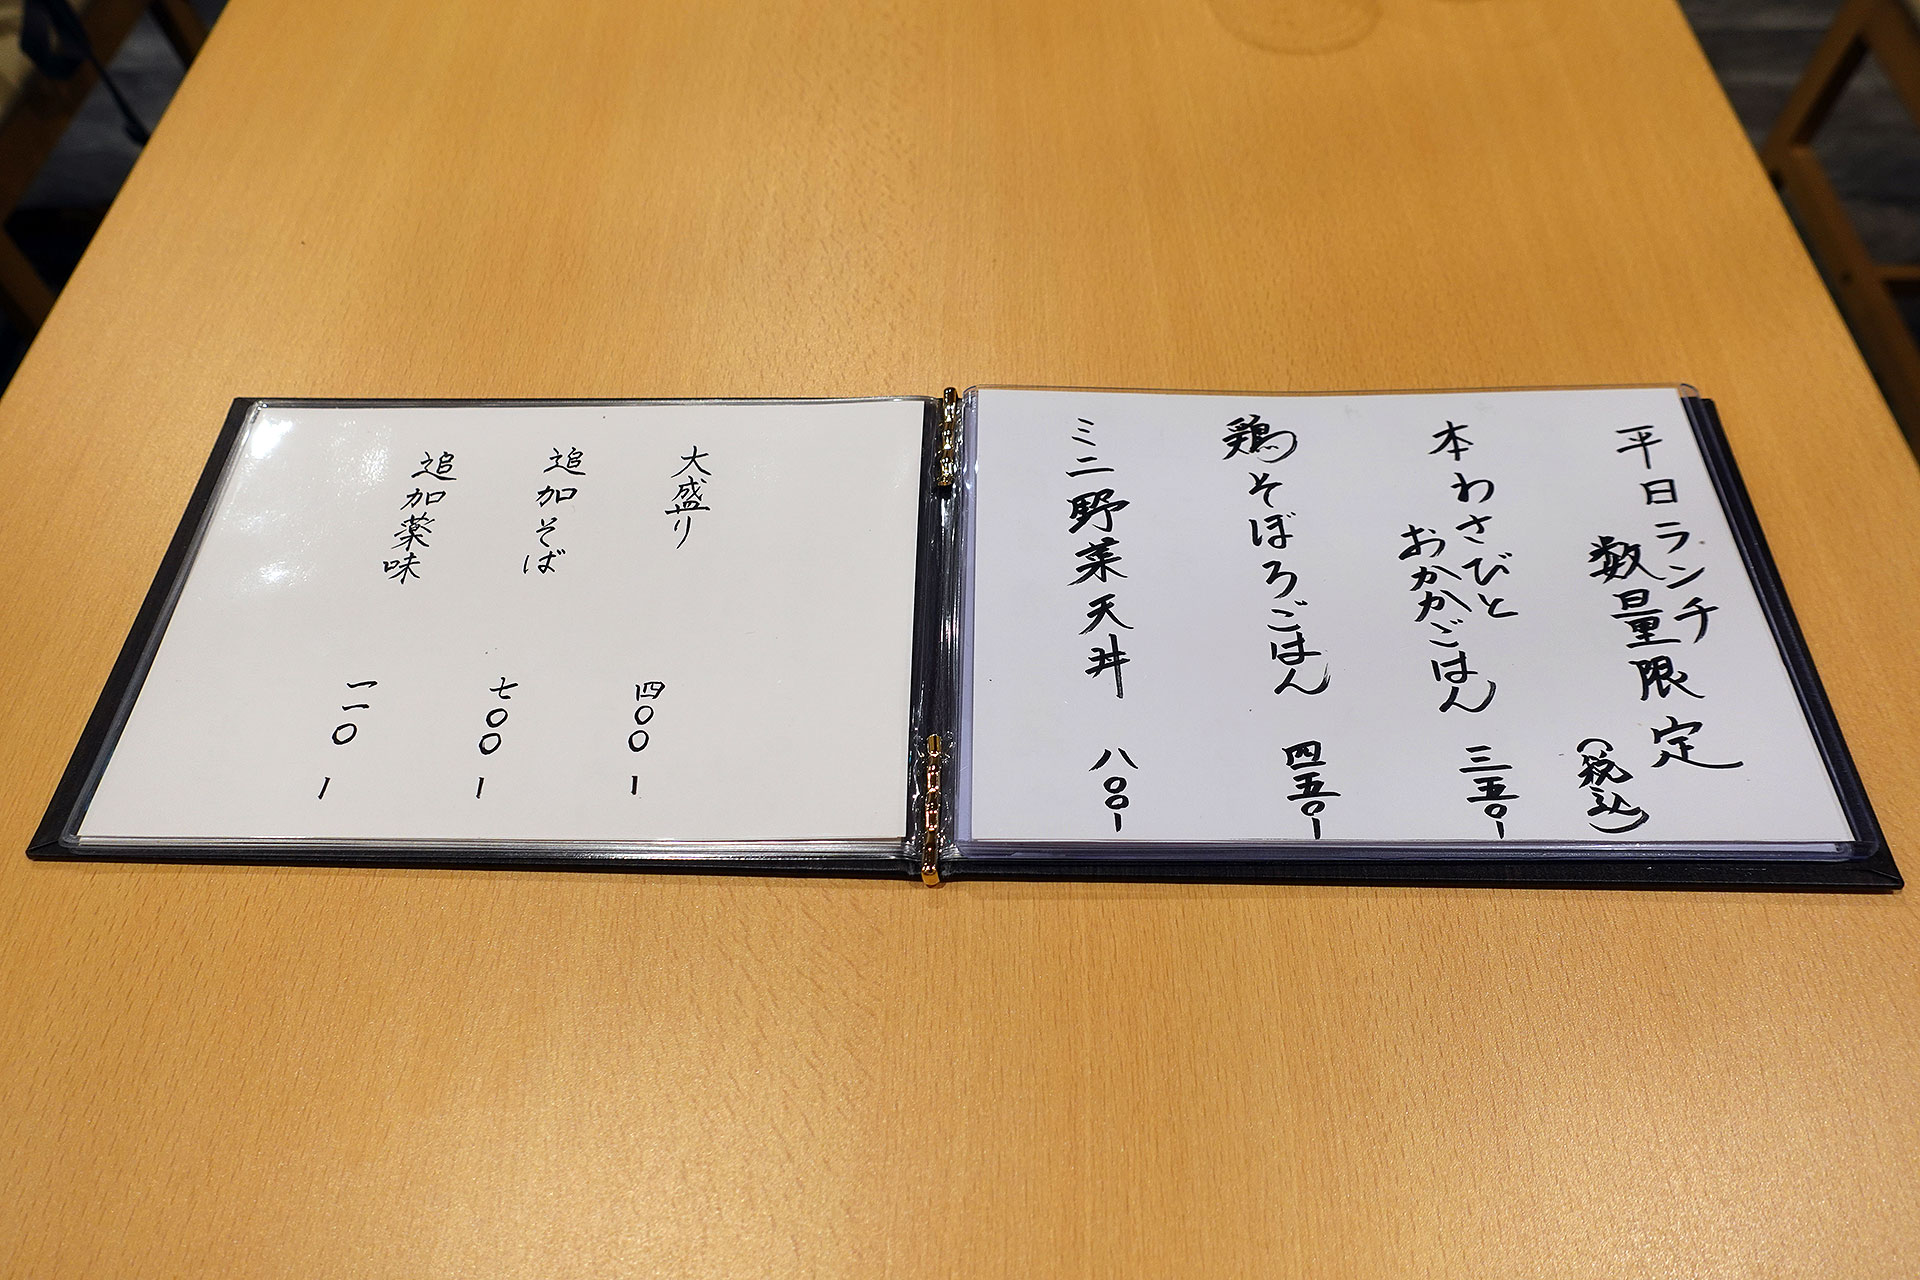 平日ランチ
数量限定
(税込)
本わさびと
おかかごはん
三五〇-
鶏そぼろごはん
四五〇-
ミニ野菜天丼
八〇〇-
大盛り
四〇〇-
追加そば
七〇〇-
追加薬味
一一〇-